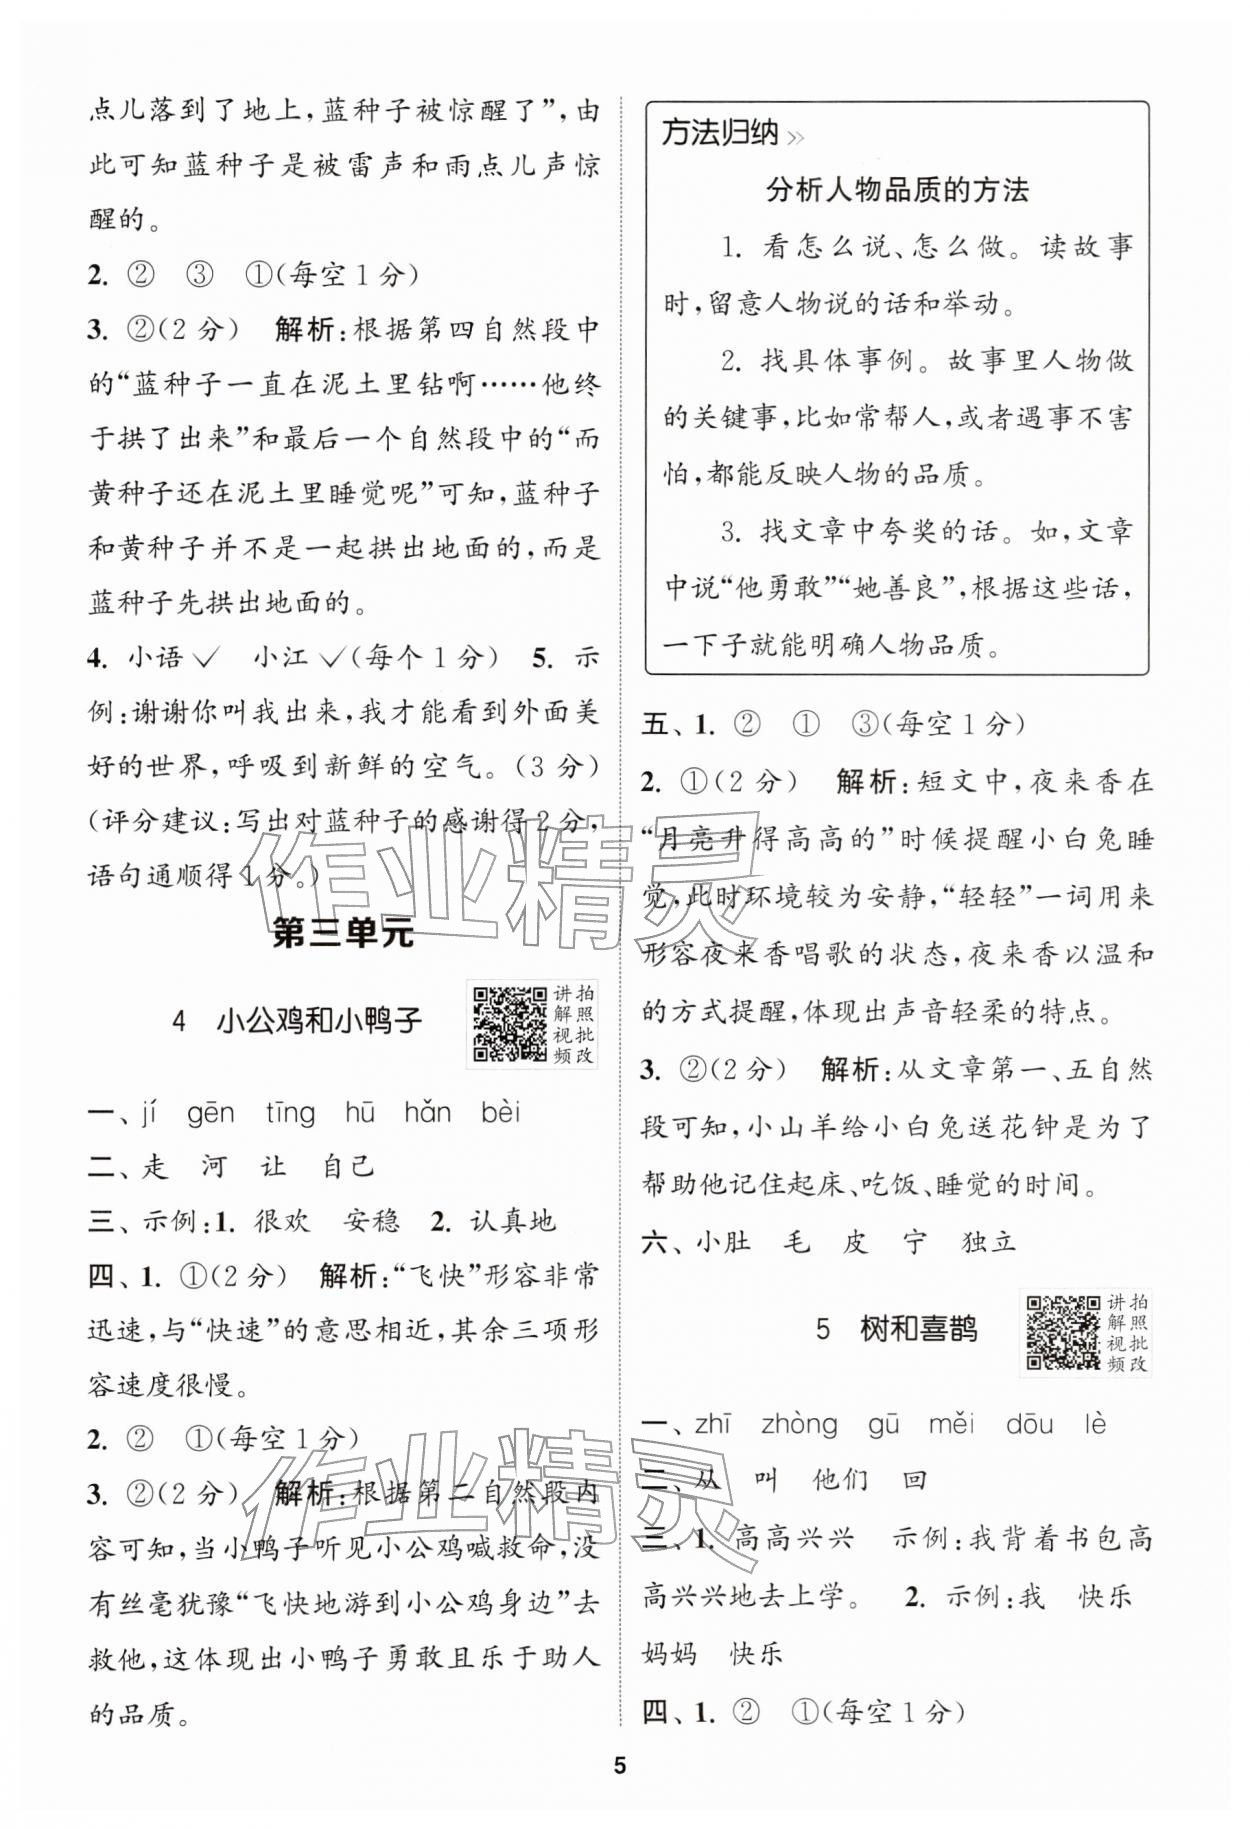 点儿落到了地上，蓝种子被惊醒了”，由
此可知蓝种子是被雷声和雨点儿声惊
醒的。
2. ② ③ ①(每空1分)
3. ②(2分) 解析：根据第四自然段中
的“蓝种子一直在泥土里钻啊……他终
于拱了出来”和最后一个自然段中的“而
黄种子还在泥土里睡觉呢”可知，蓝种子
和黄种子并不是一起拱出地面的，而是
蓝种子先拱出地面的。
4. 小语✓ 小江✓(每个1分) 5. 示
例：谢谢你叫我出来，我才能看到外面美
好的世界，呼吸到新鲜的空气。(3分)
(评分建议：写出对蓝种子的感谢得2分，
语句通顺得1分。)
第三单元
4 小公鸡和小鸭子
讲解视频 拍照批改
一、jí gēn tīng hū hǎn bèi
二、走 河 让 自己
三、示例：1. 很欢 安稳 2. 认真地
四、1. ①(2分) 解析：“飞快”形容非常
迅速，与“快速”的意思相近，其余三项形
容速度很慢。
2. ② ①(每空1分)
3. ②(2分) 解析：根据第二自然段内
容可知，当小鸭子听见小公鸡喊救命，没
有丝毫犹豫“飞快地游到小公鸡身边”去
救他，这体现出小鸭子勇敢且乐于助人
的品质。
方法归纳»
分析人物品质的方法
1. 看怎么说、怎么做。读故事
时，留意人物说的话和举动。
2. 找具体事例。故事里人物做
的关键事，比如常帮人，或者遇事不害
怕，都能反映人物的品质。
3. 找文章中夸奖的话。如，文章
中说“他勇敢”“她善良”，根据这些话，
一下子就能明确人物品质。
五、1. ② ① ③(每空1分)
2. ①(2分) 解析：短文中，夜来香在
“月亮升得高高的”时候提醒小白兔睡
觉，此时环境较为安静，“轻轻”一词用来
形容夜来香唱歌的状态，夜来香以温和
的方式提醒，体现出声音轻柔的特点。
3. ②(2分) 解析：从文章第一、五自然
段可知，小山羊给小白兔送花钟是为了
帮助他记住起床、吃饭、睡觉的时间。
六、小肚 毛 皮 宁 独立
5 树和喜鹊
讲解视频 拍照批改
一、zhī zhòng gū měi dōu lè
二、从 叫 他们 回
三、1. 高高兴兴 示例：我背着书包高
高兴兴地去上学。 2. 示例：我 快乐
妈妈 快乐
四、1. ② ①(每空1分)
5
作业精灵
作业精灵